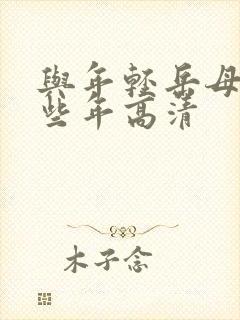 與年輕岳母
些年高清
木子念